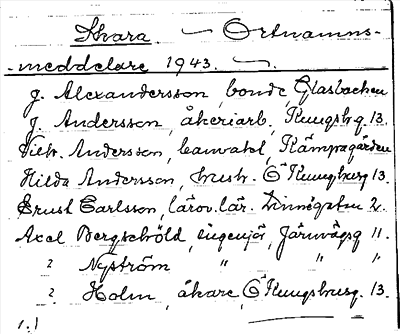 Skara. — Ortnamns-
-meddelare 1943. —.
J. Alexandersson, bonde, Glasbacken
J. Andersson, åkeriarb., Kungsbg. 13.
Vikt. Andersson, banvakt, Kämpagården
Hilda Andersson, hustr. Ö Kungsburg 13.
Ernst Carlsson, lärov.lär. Linnégatan 2.
Axel Bergsköld, ingenjör, Järnvägsg 11.
? Nyström " " "
? Holm, åkare, Ö Kungsbusg. 13.